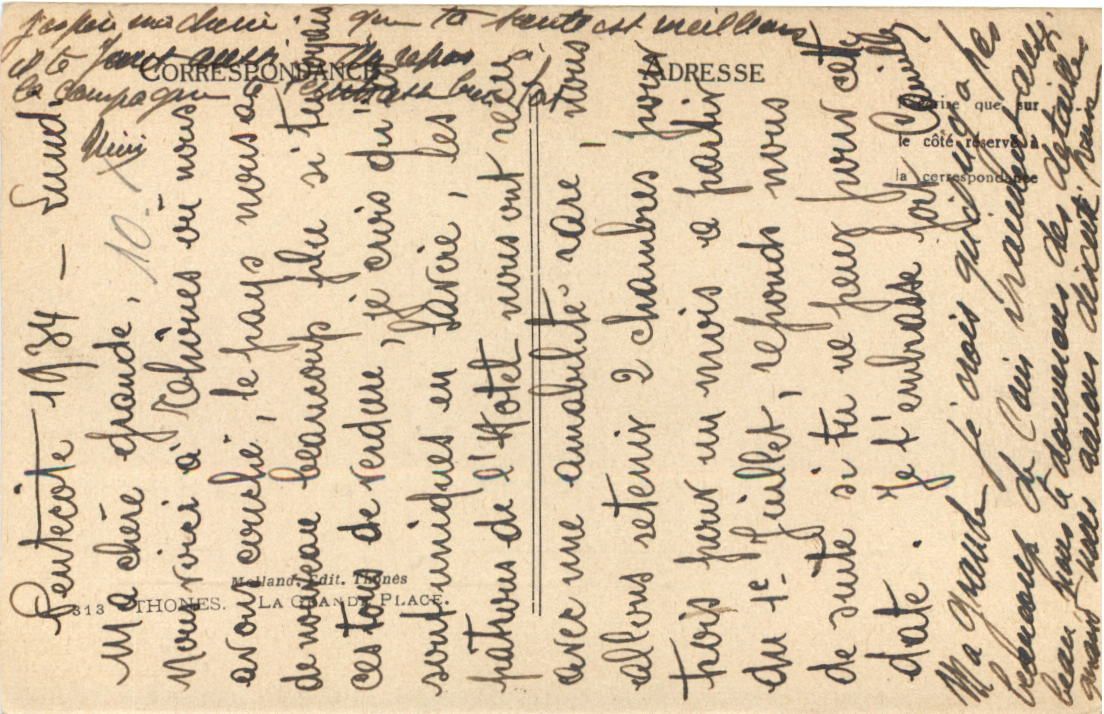 CORRESPONDANCE
ADRESSE
N'écrire que sur
le côté réservé à
la correspondance
313 - THONES. LA GRANDE PLACE.
Molland. Edit. Thônes
Pentecote 1934 — Lundi
Ma chère grande,
Nous voici à Thônes où nous
avons couché, le pays nous a
de nouveau beaucoup plu si tu voyais
ces tons de verdure, je crois qu'
sont uniques en Savoie, les
patrons de l'Hotel nous ont reçu
avec une amabilité rare, nous
allons retenir 2 chambres pour
trois pour un mois à partir
du 1e Juillet, reponds nous
de suite si tu ne peux pour cette
date. Je t'embrasse fort
Camille
Ma grande je vois qu'il y a pas
beaucoup de
beau nous te donnerons des détails
nous avons discuté
j'espère ma cherie que ta santé est meilleure
il te faut aussi du repos
la campagne fort
Mimi
10